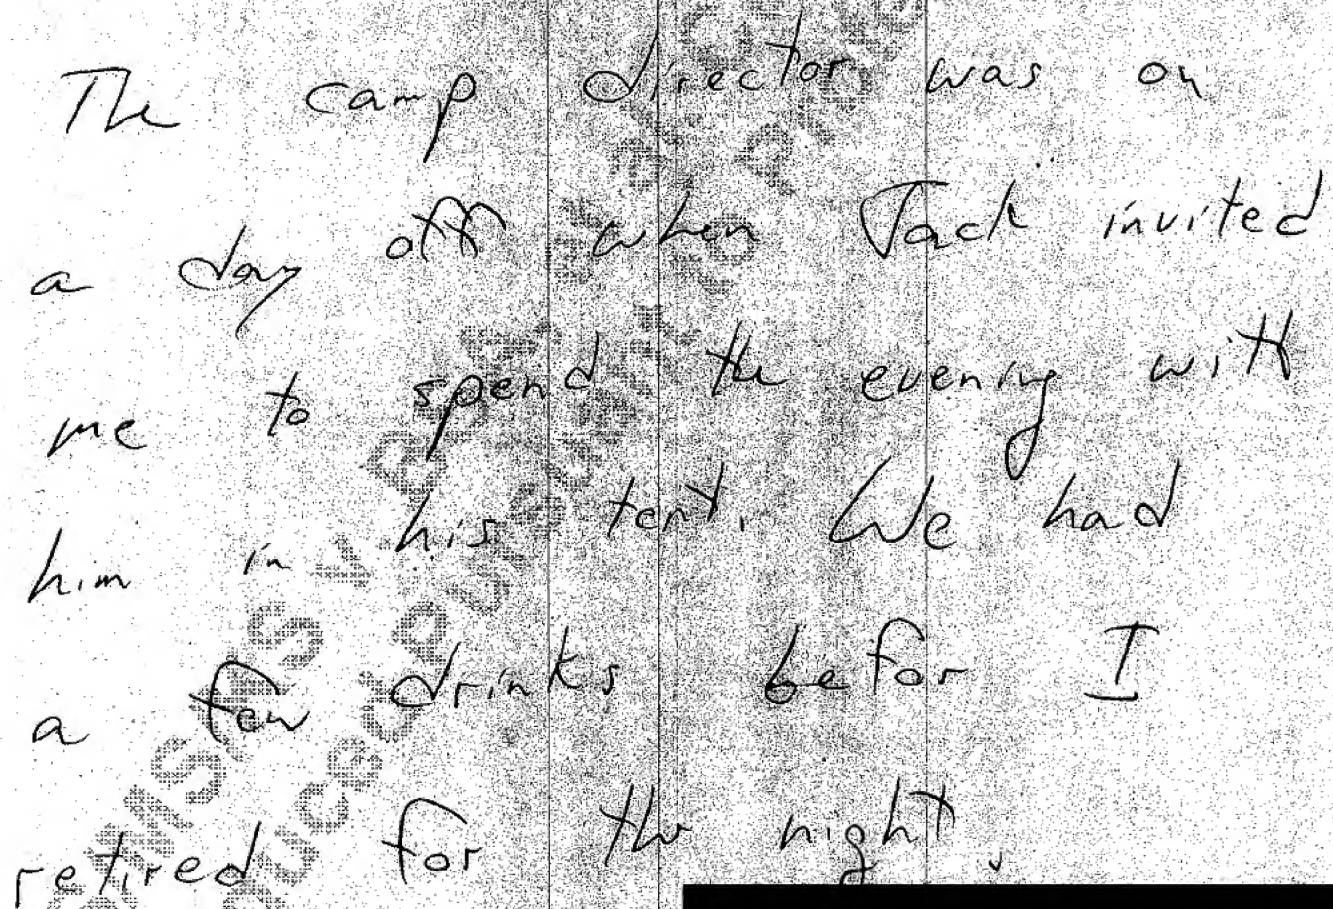 The camp director was on
a day off when Jack invited
me to spend the evening with
him in his tent. We had
a few drinks befor I
retired for the night.